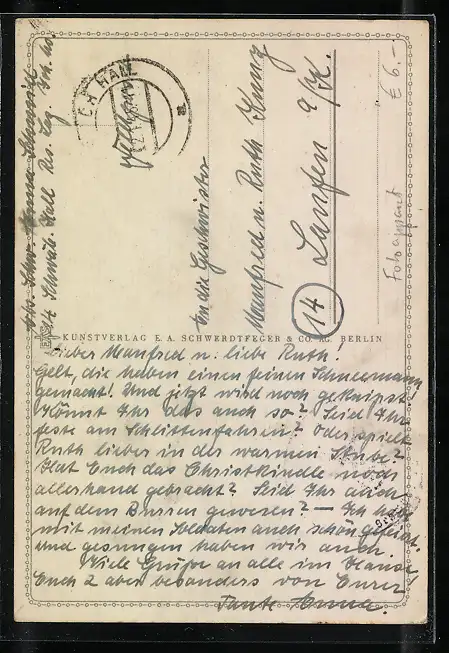 Schw. Hall Res. Laz.
CH HALL
Feldpost
An die Geschwister
Manfred u. Ruth Kunz
(14) Laufen a/K.
€ 6.-
Fotoapparat
KUNSTVERLAG E. A. SCHWERDTFEGER & CO. AG. BERLIN
Lieber Manfred u. liebe Ruth!
Gelt, die haben einen feinen Schneemann
gemacht! Und jetzt wird noch geknipst!
Könnt Ihr das auch so? Seid Ihr
feste am Schlittenfahren? Oder spielt
Ruth lieber in der warmen Stube?
Hat Euch das Christkindle noch
allerhand gebracht? Seid Ihr auch
auf dem Bussen gewesen? – Ich habe
mit meinen Soldaten auch schön gefeiert
und gesungen haben wir auch.
Viele Grüße an alle im Hause
Euch 2 aber besonders von Eurer
Tante Anna.